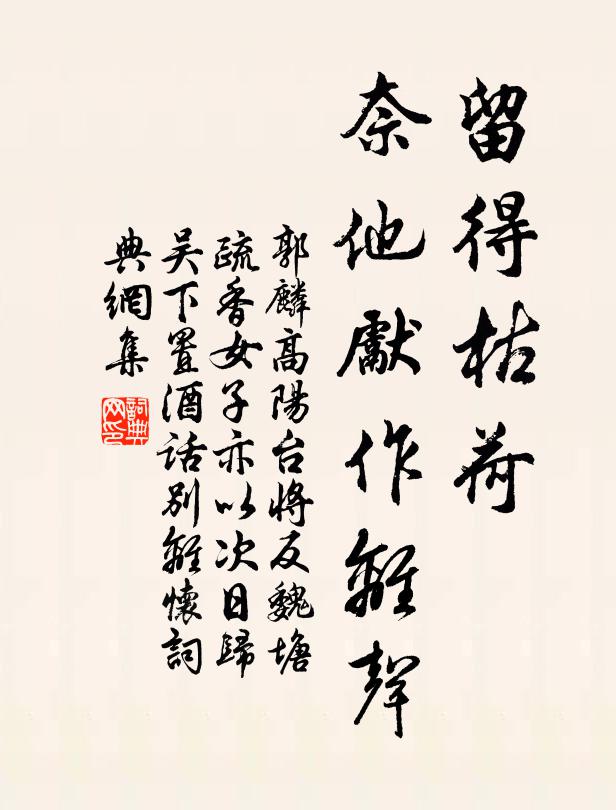 留得枯荷
奈他獻作離聲
郭麟高陽台將反魏塘
疏香女子亦以次日歸
吴下置酒话别離懷詞
典網集
詞典
网印